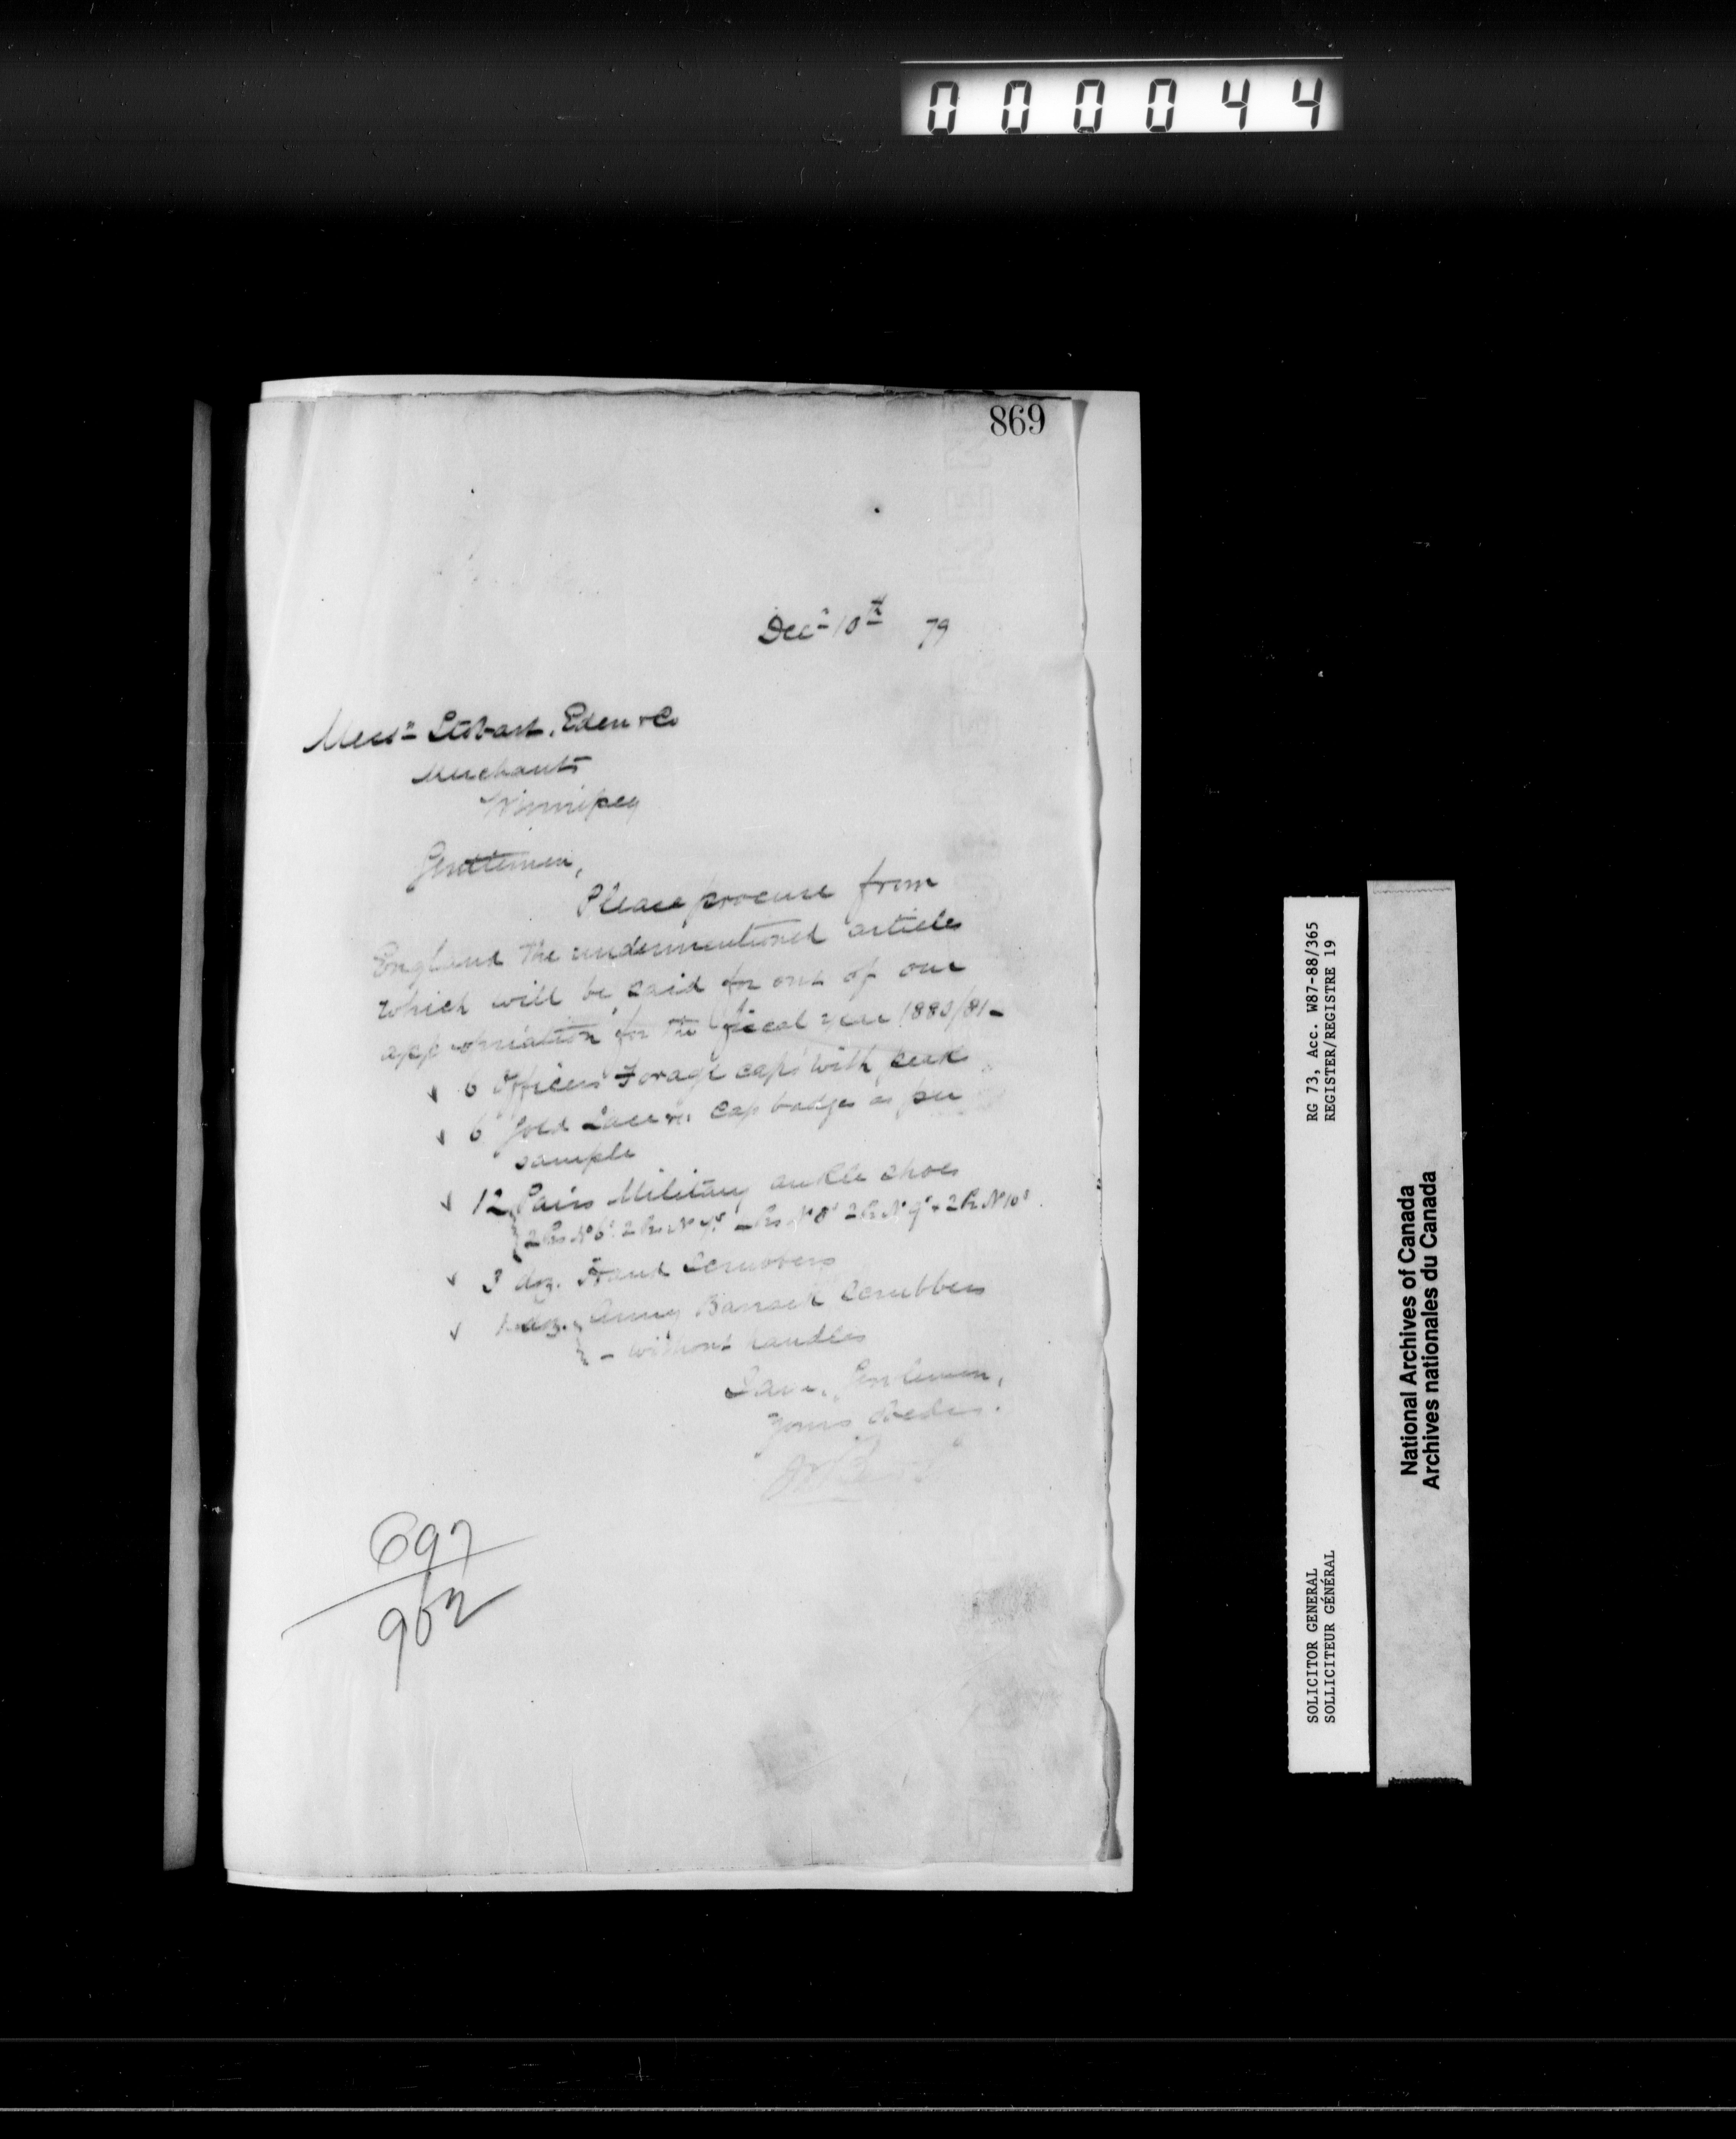 000044
869
Decr 10th 79
Messrs Stobart, Eden & Co
Merchants
Winnipeg
Gentlemen,
Please procure from
England the undermentioned articles
which will be paid for out of our
appropriation for the fiscal year 1880/81-
6 Officers Forage caps with peak
6 Gold Cap badges as per
sample
12 Pairs Military ankle shoes
2 Prs No 6s 2 Prs No 7s Prs No 8s 2 Pr No 9s + 2 Pr No 10s
3 doz. Hand Scrubbers
1 doz. Army Barrack Scrubbers
- without handles
Gentlemen,
Yours
697
962
RG 73, Acc. W87-88/365
REGISTER/REGISTRE 19
SOLICITOR GENERAL
SOLLICITEUR GÉNÉRAL
National Archives of Canada
Archives nationales du Canada